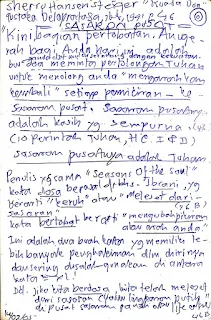 Sherry Hansen Steiger "Kuasa Doa"
SASARAN PUSAT
"Kini bagian pertobatan. Anuge-
rah bagi Anda hari ini adalah
bukan
doa meminta pertolongan Tuhan
untuk menolong anda "mengarahkan
kembali" setiap pemikiran ke
sasaran pusat. Sasaran pusatnya
adalah kasih yg sempurna
(10 perintah Tuhan,
Sasaran pusatnya adalah Tuhan.
Penulis yg sama "Seasons of the Soul"
kata dosa berasal dr bhs. Ibrani, yg
berarti "keruh" atau "meleset dari
sasaran"
kata bertobat berarti "mengubah pikiran
atau arah anda."
Ini adalah dua buah kata yg memiliki le-
bih banyak penghakiman dlm dirinya
dan sering disalah gunakan di antara
kata
Dll. jika kita berdosa, kita telah meleset
dari sasaran
di pusat sasaran panah atau life center